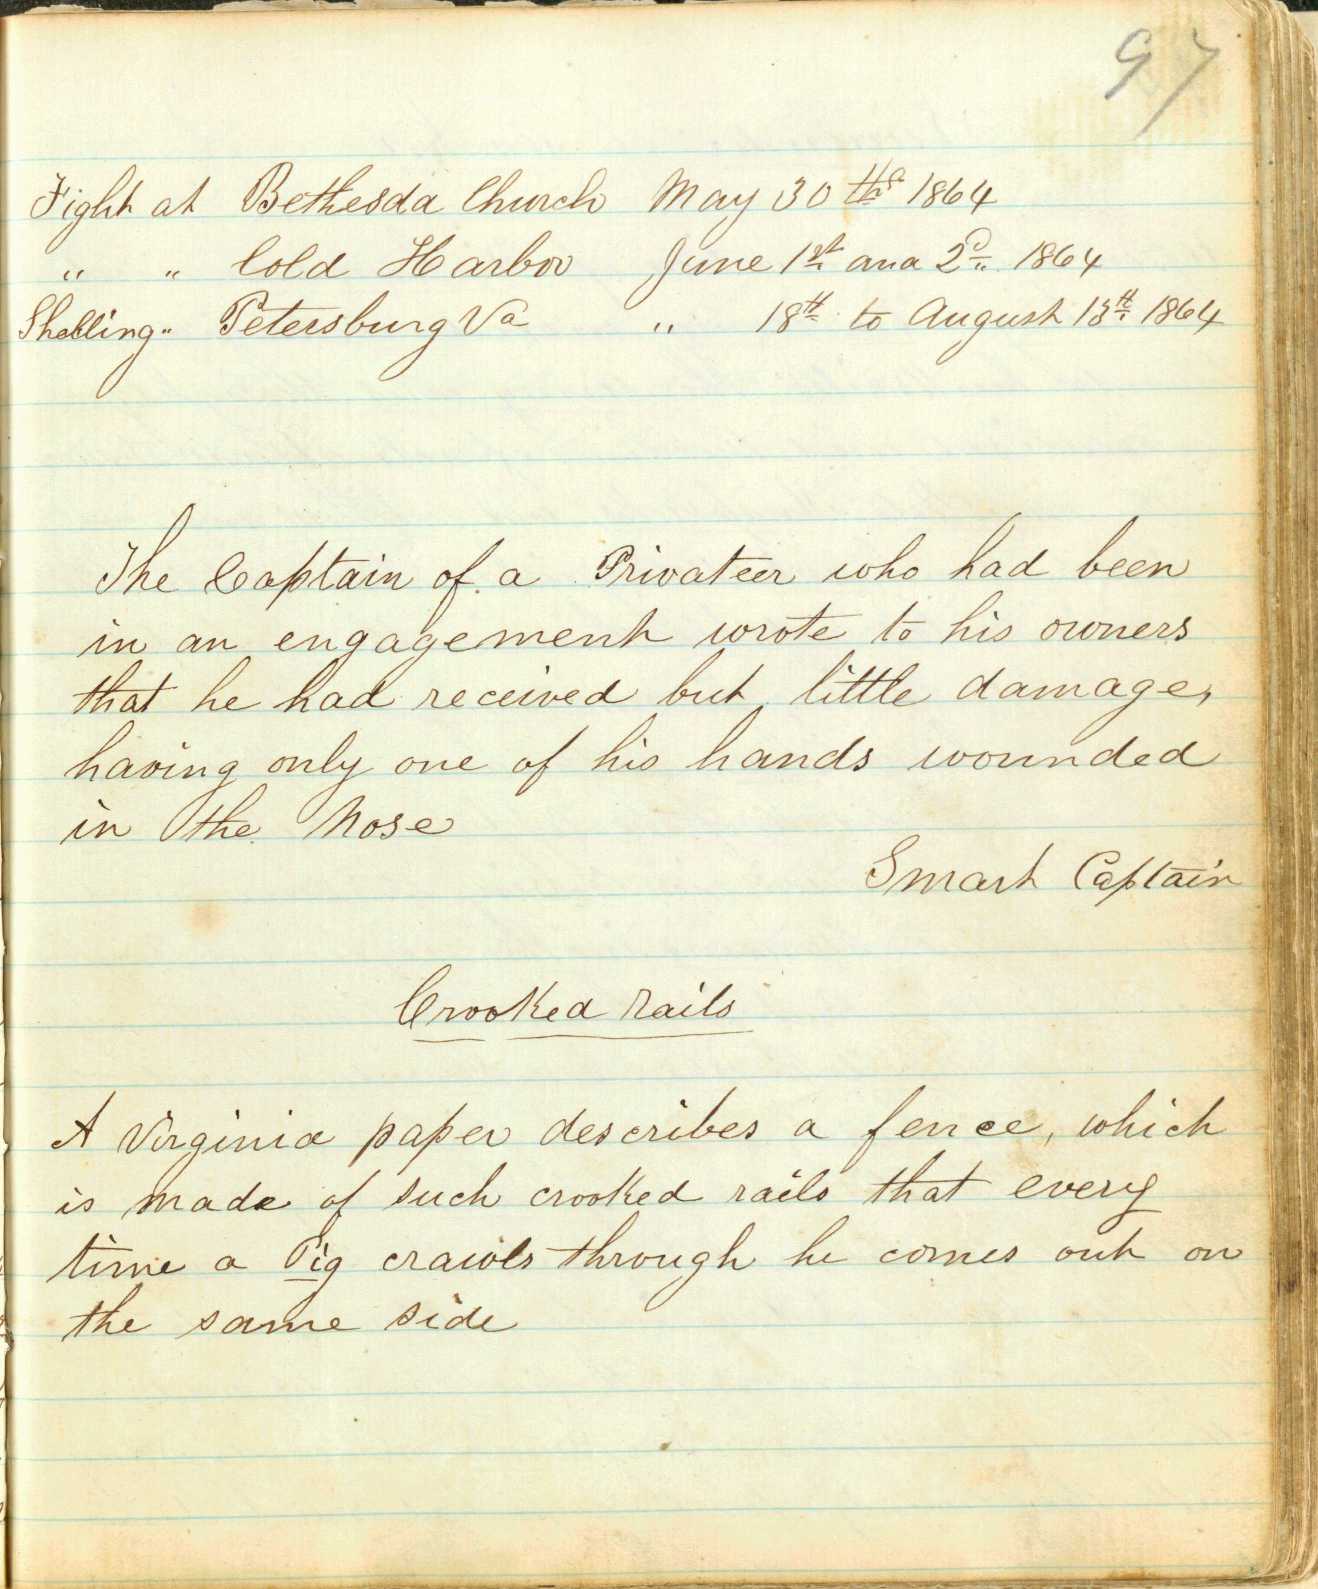 97
Fight at Bethesda Church May 30th 1864
" " Cold Harbor June 1st and 2d 1864
Shelling " Petersburg Va " 18th to August 13th 1864
The Captain of a Privateer who had been
in an engagement wrote to his owners
that he had received but little damage,
having only one of his hands wounded
in the Nose
Smart Captain
Crooked Rails
A Virginia paper describes a fence, which
is made of such crooked rails that every
time a Pig crawls through he comes out on
the same side